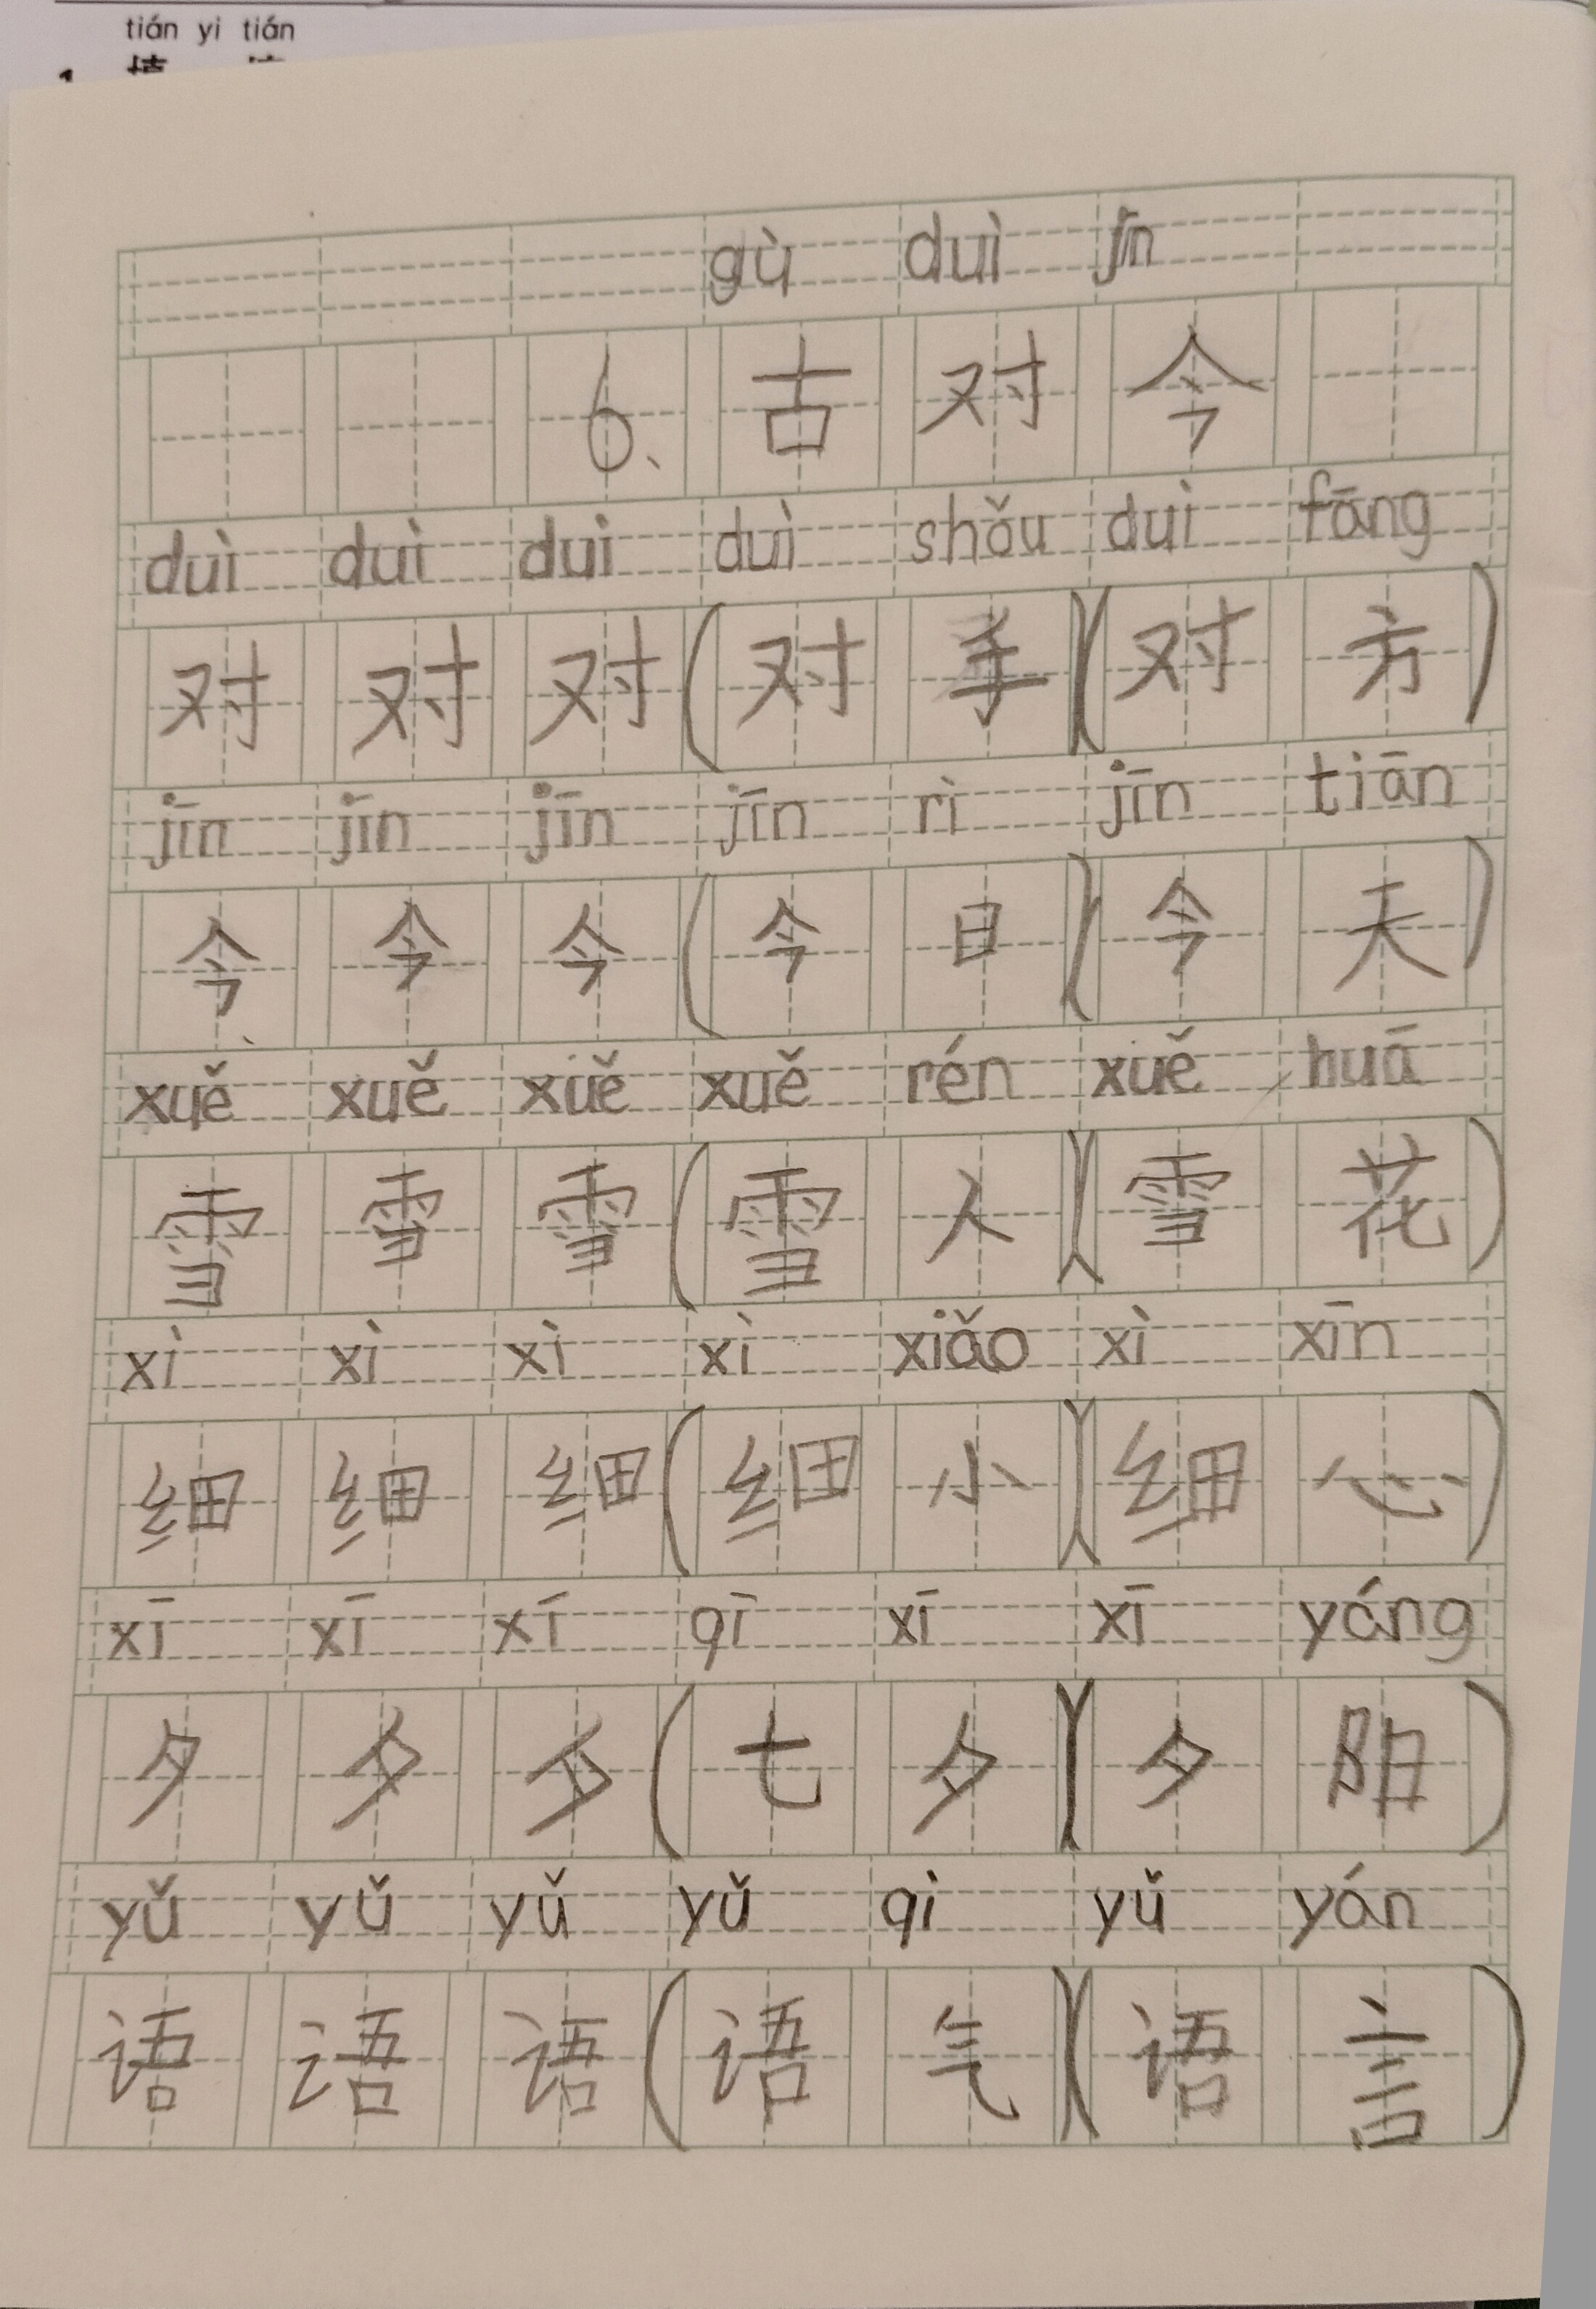 tián yi tián
gù duì jīn
6、古对今
duì duì duì duì shǒu duì fāng
对对对(对手)(对方)
jīn jīn jīn jīn rì jīn tiān
今今今(今日)(今天)
xuě xuě xuě xuě rén xuě huā
雪雪雪(雪人)(雪花)
xì xì xì xì xiǎo xì xīn
细细细(细小)(细心)
xī xī xī qī xī xī yáng
夕夕夕(七夕)(夕阳)
yǔ yǔ yǔ yǔ qì yǔ yán
语语语(语气)(语言)